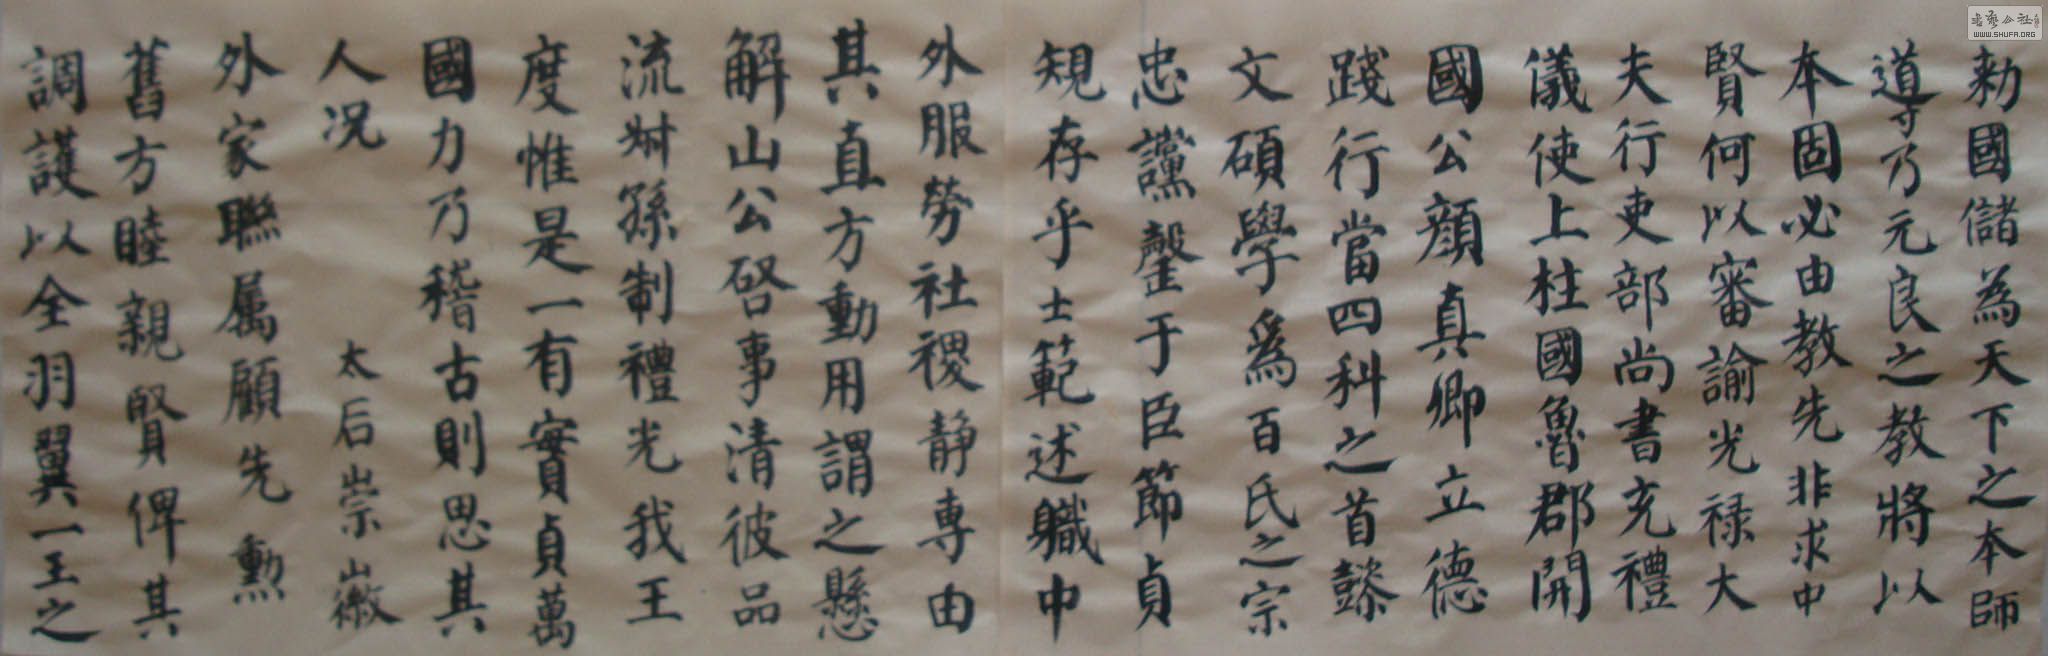 勅國儲為天下之本師
導乃元良之教將以
本固必由教先非求中
賢何以審諭光禄大
夫行吏部尚書充禮
儀使上柱國魯郡開
國公顔真卿立德
踐行當四科之首懿
文碩學爲百氏之宗
忠讜罄于臣節貞
規存乎士範述職中
外服勞社稷静專由
其直方動用謂之懸
解山公啓事清彼品
流叔孫制禮光我王
度惟是一有實貞萬
國力乃稽古則思其
人况 太后崇徽
外家聯屬顧先勲
舊方睦親賢俾其
調護以全羽翼一王之
書藝公社
WWW.SHUFA.ORG